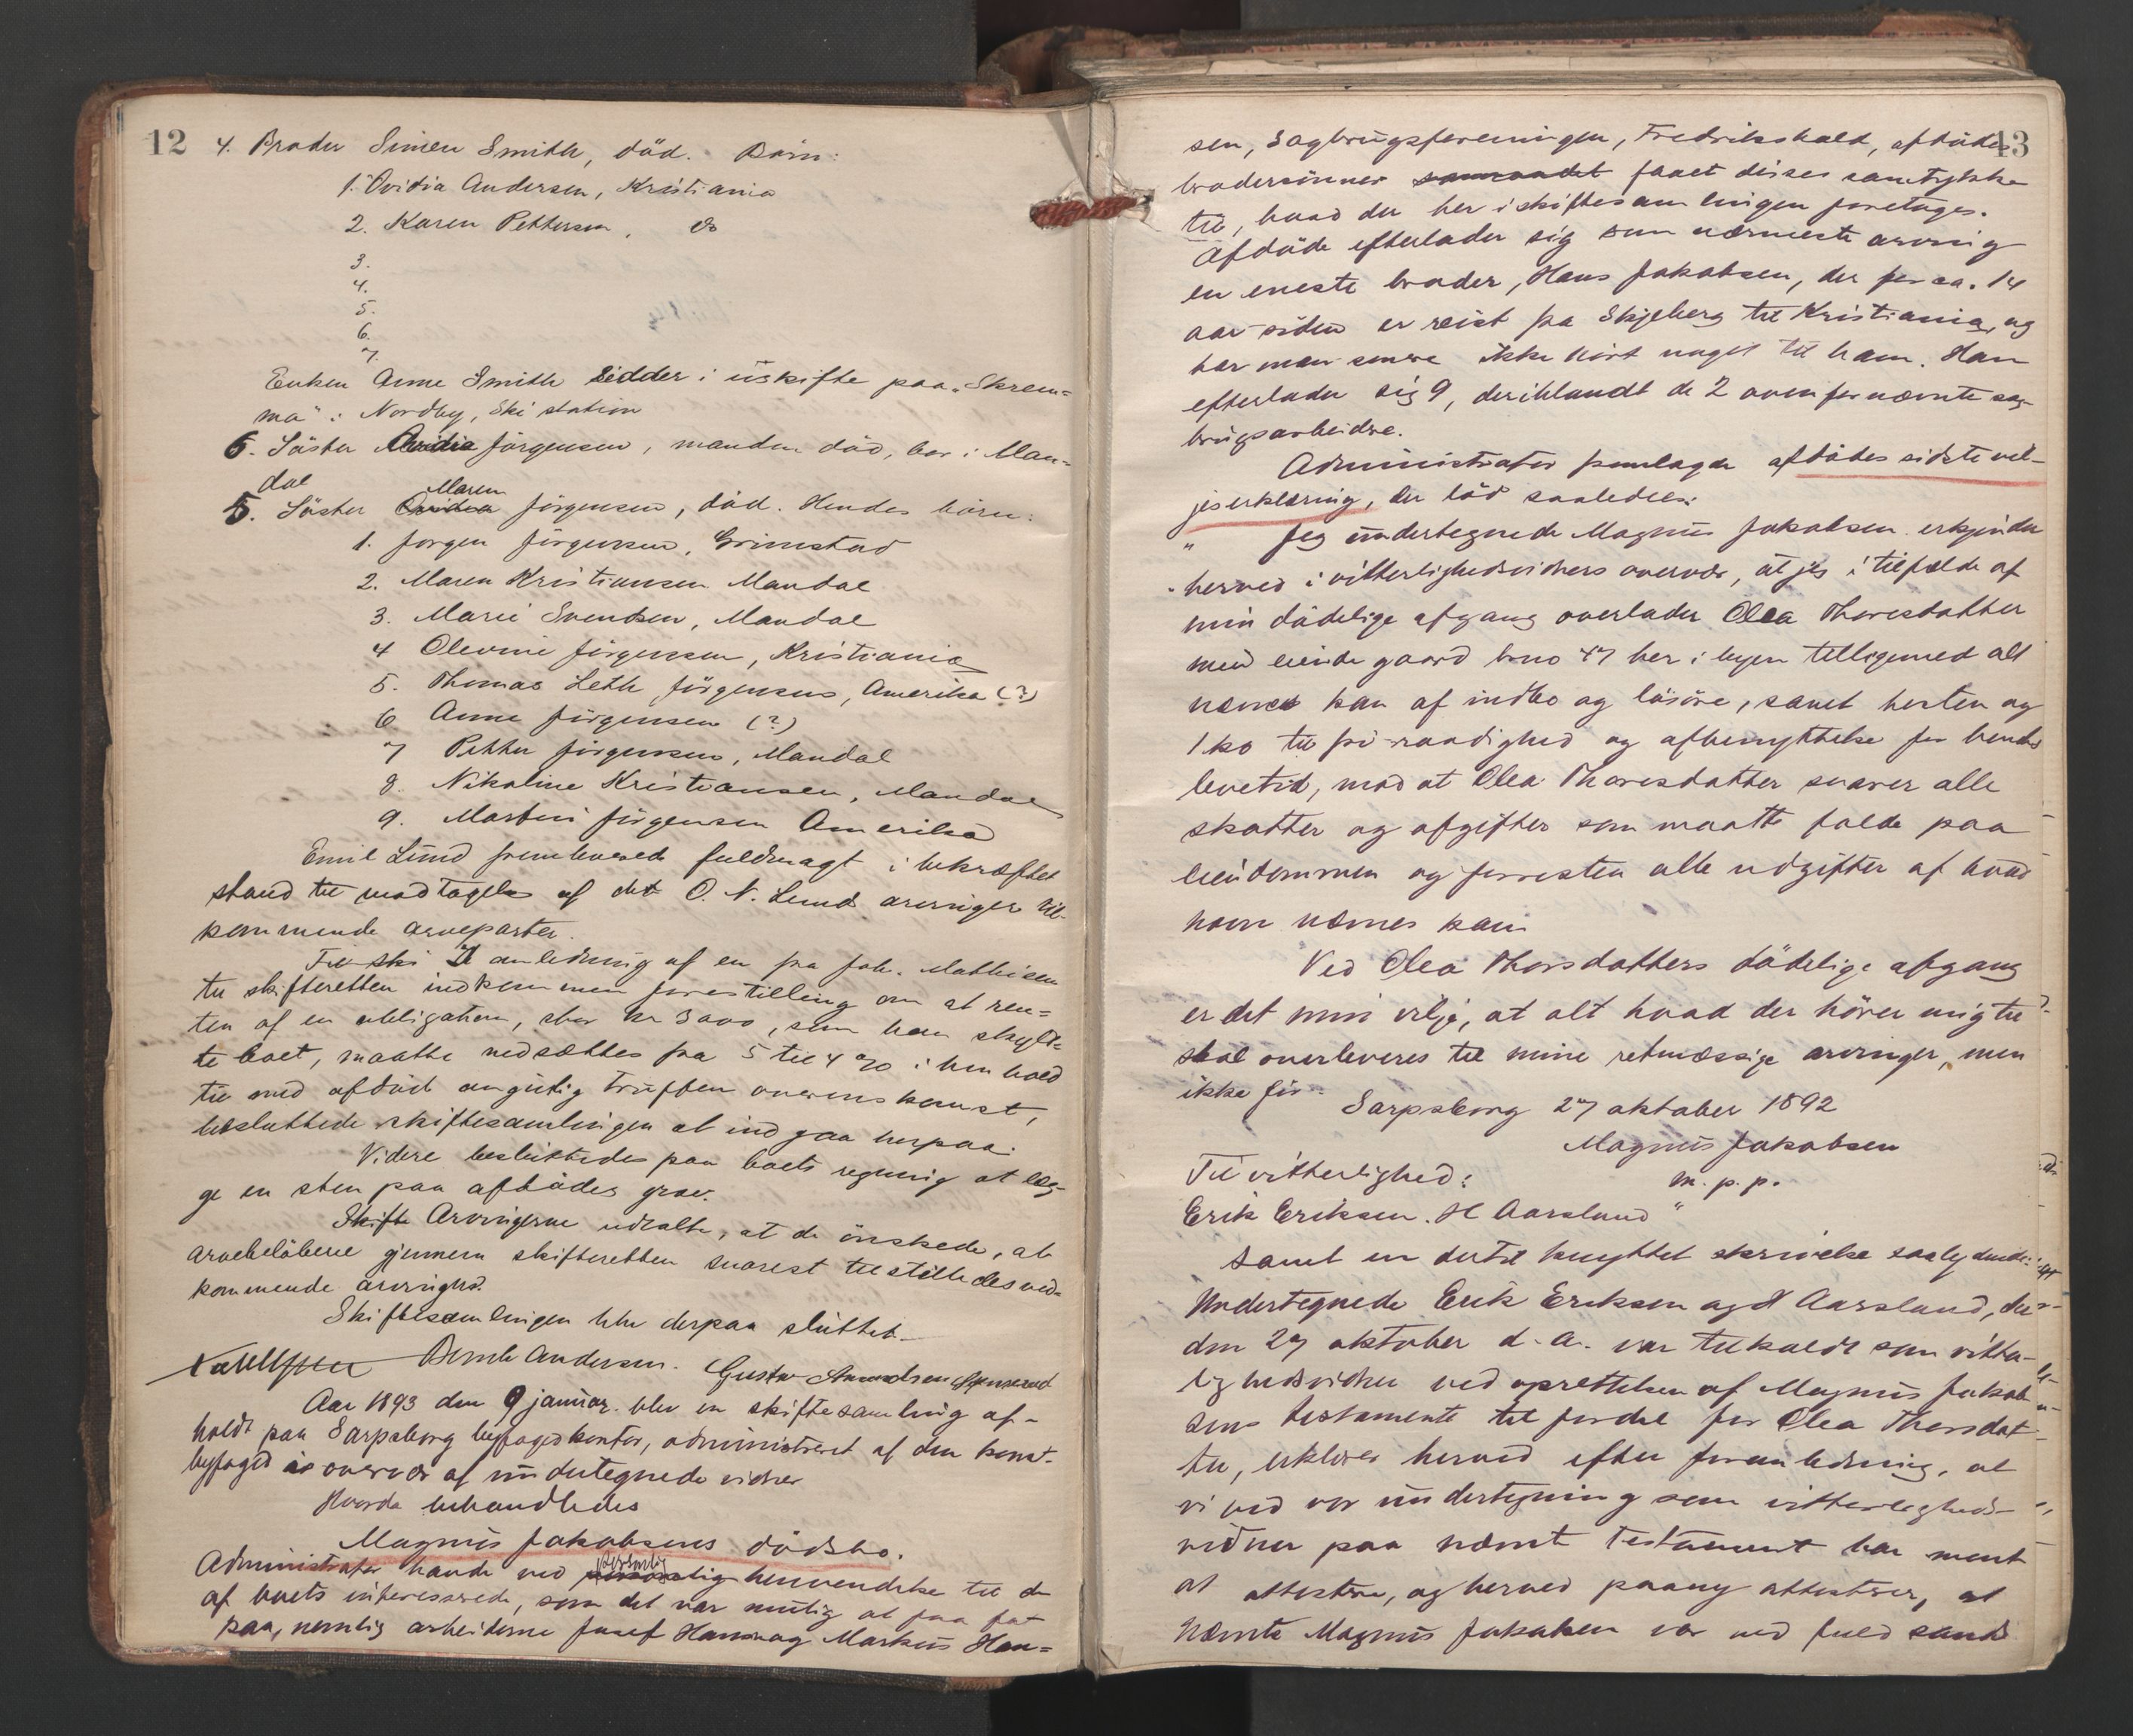 12
4. Broder Simen Smith, död. Børn:
1. Ovidia Andersen, Kristiania
2. Karen Pettersen, do
3.
4.
5.
6.
7.
Enken Anne Smith sidder i uskifte paa „Skrem=
ma": Nordby, Ski station
6. Søster Ovidia Jörgensen, manden död, bor i Man=
dal
5. Søster Ovidia Maren Jörgensen, död. Hendes börn:
1. Jorgen Jörgensen, Grimstad
2. Maren Kristiansen Mandal
3. Marie Svendsen, Mandal
4 Olevine Jörgensen, Kristiania
5. Thomas Leth Jörgensen, Amerika (?)
6 Anne Jörgensen (?)
7 Petter Jörgensen, Mandal
8. Nikoline Kristiansen, Mandal
9. Martin Jörgensen Amerika
Emil Lund fremleverede fuldmagt i bekræftet
stand til modtagelse af det O. N. Lunds arvinger til-
kommende arveparter.
Til ski I anledning af en fra Joh. Mathisen
til skifteretten indkommen forestilling om at ren=
ten af en obligation, stor kr 3000, som han skyld=
te boet, maatte nedsættes fra 5 til 4 % i henhold
til med afdöde angivelig truffen overenskomst,
besluttede skiftesamlingen at indgaa herpaa.
Videre besluttedes paa boets regning at læg-
ge en sten paa afdödes grav.
Skifte Arvingerne udtalte, at de önskede, at
arvebelöbene gjennem skifteretten snarest tilstilledes ved=
kommende arvinger.
Skiftesamlingen blev derpaa sluttet.
Bernh Andersen. Gustav Amundsen
Aar 1893 den 9 januar. blev en skiftesamling af-
holdt paa Sarpsborg byfogedkontor, administreret af den konst.
byfoged i overvær af undertegnede vidner
Hvorda behandledes
Magnus Jakobsens dödsbo.
Administrator havde ved personlig henvendelse til de
af boets interesserede, som det var mulig at faa fat
paa, nemlig arbeiderne Josef Hansen og Markus Han=
13
sen, Sagbrugsforeningen, Fredrikshald, afdödes
brodersönner samraadet faaet disses samtykke
til, hvad der her i skiftesamlingen foretages.
Afdöde efterlader sig som nærmeste arving
en eneste broder, Hans Jakobsen, der for ca. 14
aar siden er reist fra Skjeberg til Kristiania, og
har man senere ikke hört noget til ham. Han
efterlader sig 9, deriblandt de 2 ovenfor nævnte sag-
brugsarbeidere.
Administrator fremlagde afdödes sidste vil-
jeserklæring, der löd saaledes:
" Jeg undertegnede Magnus Jakobsen erkjender
herved i vitterlighedsvidners overvær, at jeg i tilfælde af
min dödelige afgang overlader Olea Thoresdatter
min eiende gaard bno 47 her i byen tilligemed alt
nævnes kan af indbo og lösöre, samt hesten og
1 ko til fri raadighed og afbenyttelse for hendes
levetid, mod at Olea Thoresdatter svarer alle
skatter og afgifter som maatte falde paa
eiendommen og forresten alle udgifter af hvad
navn nævnes kan.
Ved Olea Thorsdatters dödelige afgang
er det min vilje, at alt hvad der hörer mig til
skal overleveres til mine retmæssige arvinger, men
ikke för.
Sarpsborg 27 oktober 1892
Magnus Jakobsen
Til vitterlighed: m. p. p.
Erik Eriksen. H Aarsland "
samt en dertil knyttet skrivelse saalydende:
Undertegnede Erik Eriksen og H Aarsland, der
den 27 oktober d. a. var tilkaldt som vitter-
lighedsvidner ved oprettelsen af Magnus Jakob
sens testamente til fordel for Olea Thorsdat-
ter, erklærer herved efter foranledning, at
vi ved vor undertegning som vitterligheds-
vidner paa nævnt testament har ment
at attestere, og herved paany attesterer, at
Nævnte Magnus Jakobsen var ved fuld sands